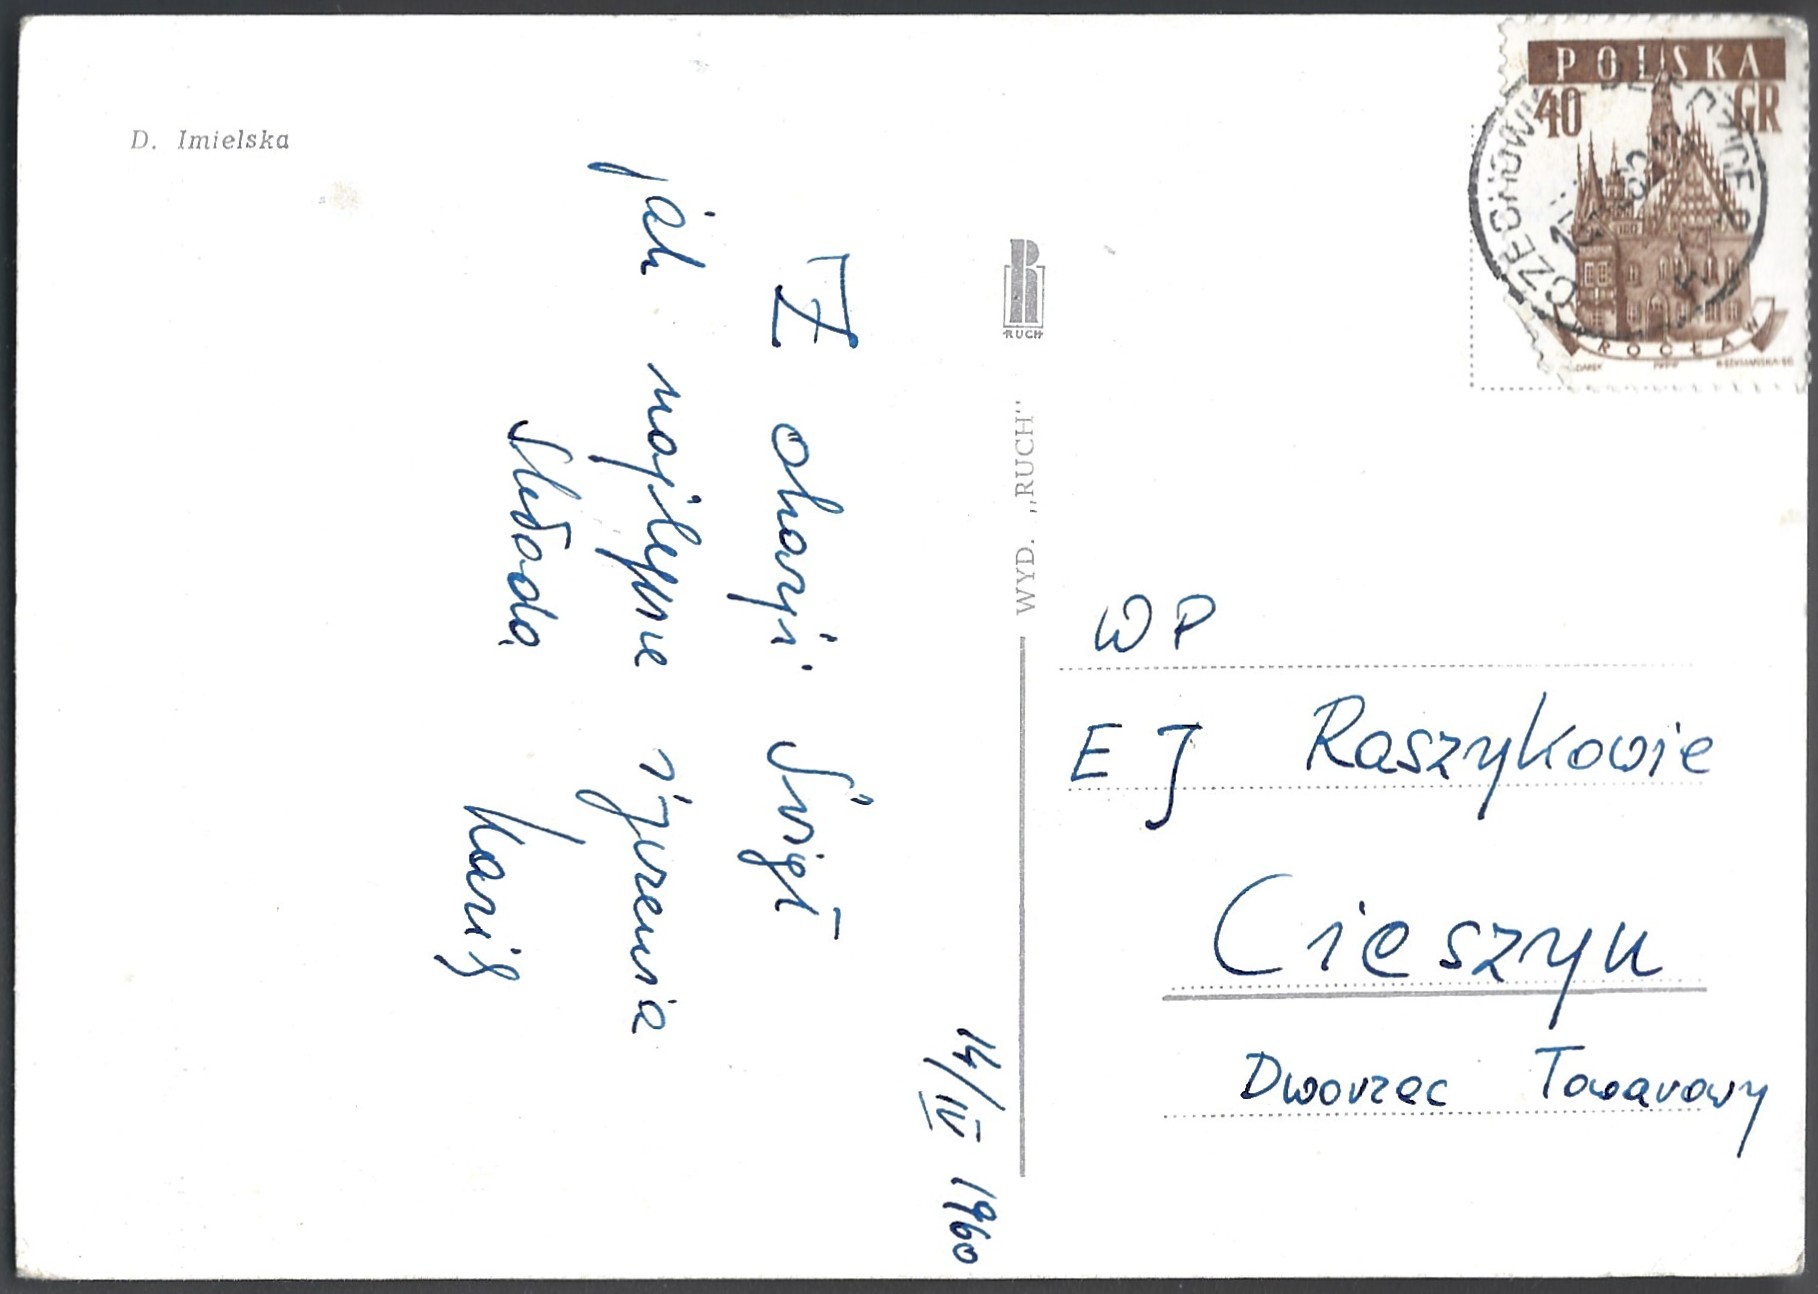 D. Imielska
14/IV 1960
Z okazji Świąt
jak najlepsze życzenia
RUCH
WYD. „RUCH"
POLSKA
40 GR
WROCŁAW
WP
E J Raszykowie
Cieszyn
Dworzec Towarowy